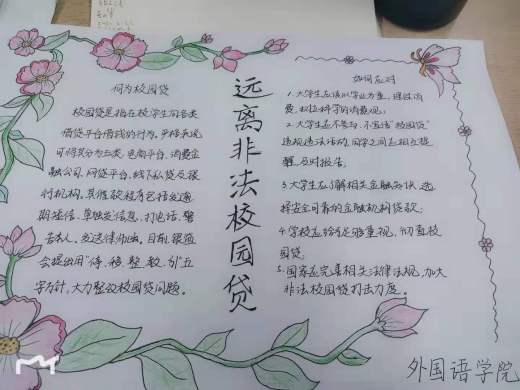 何为校园贷
校园贷是指在校学生向各类
借贷平台借钱的行为。严格来说
可将其分为五类,电商平台、消费金
融公司、网贷平台、线下私贷及银
行机构。其催款程序包括发逾
期短信、单独发信息,打电话,警
告本人,发送律师函,目前,银监
会提出用“停、移、整、教、引”五
字方针,大力整改校园贷问题。
远离非法校园贷
如何应对
1.大学生应该以学业为重,理性消
费,树立科学的消费观;
2.大学生应不参与、不宣传“校园贷”
违规违法活动,同学之间互相提
醒,及时报告。
3.大学生应了解相关金融知识,选
择安全可靠的金融机构贷款;
4.学校应给予足够重视,彻查校
园贷。
5.国家应完善相关法律法规,加大
非法校园贷打击力度。
外国语学院